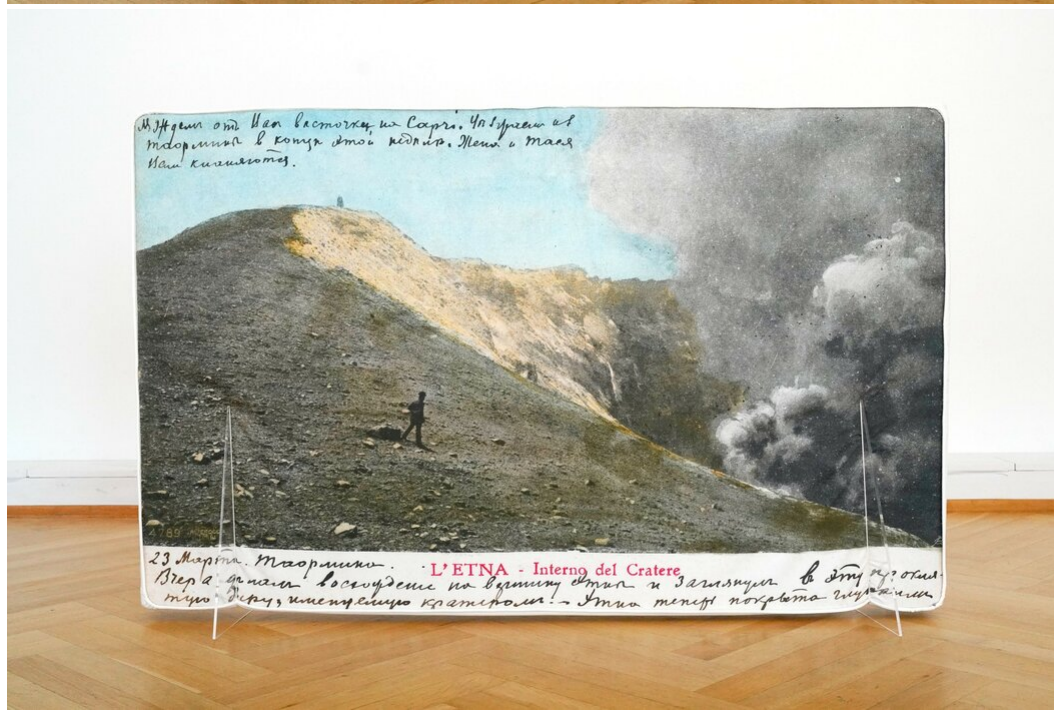 Ждемъ отъ Вас весточки на Capri. Уѣзжаем из
Таормины в конце этой недели. Жена и Тася
Вам кланяются.
4789
23 Марта. Таормина.
L'ETNA - Interno del Cratere
Вчера делалъ восхождение на вершину Этны и заглянулъ в эту прокля-
тую дыру, именуемую кратеромъ. - Этна теперь покрыта глубокими